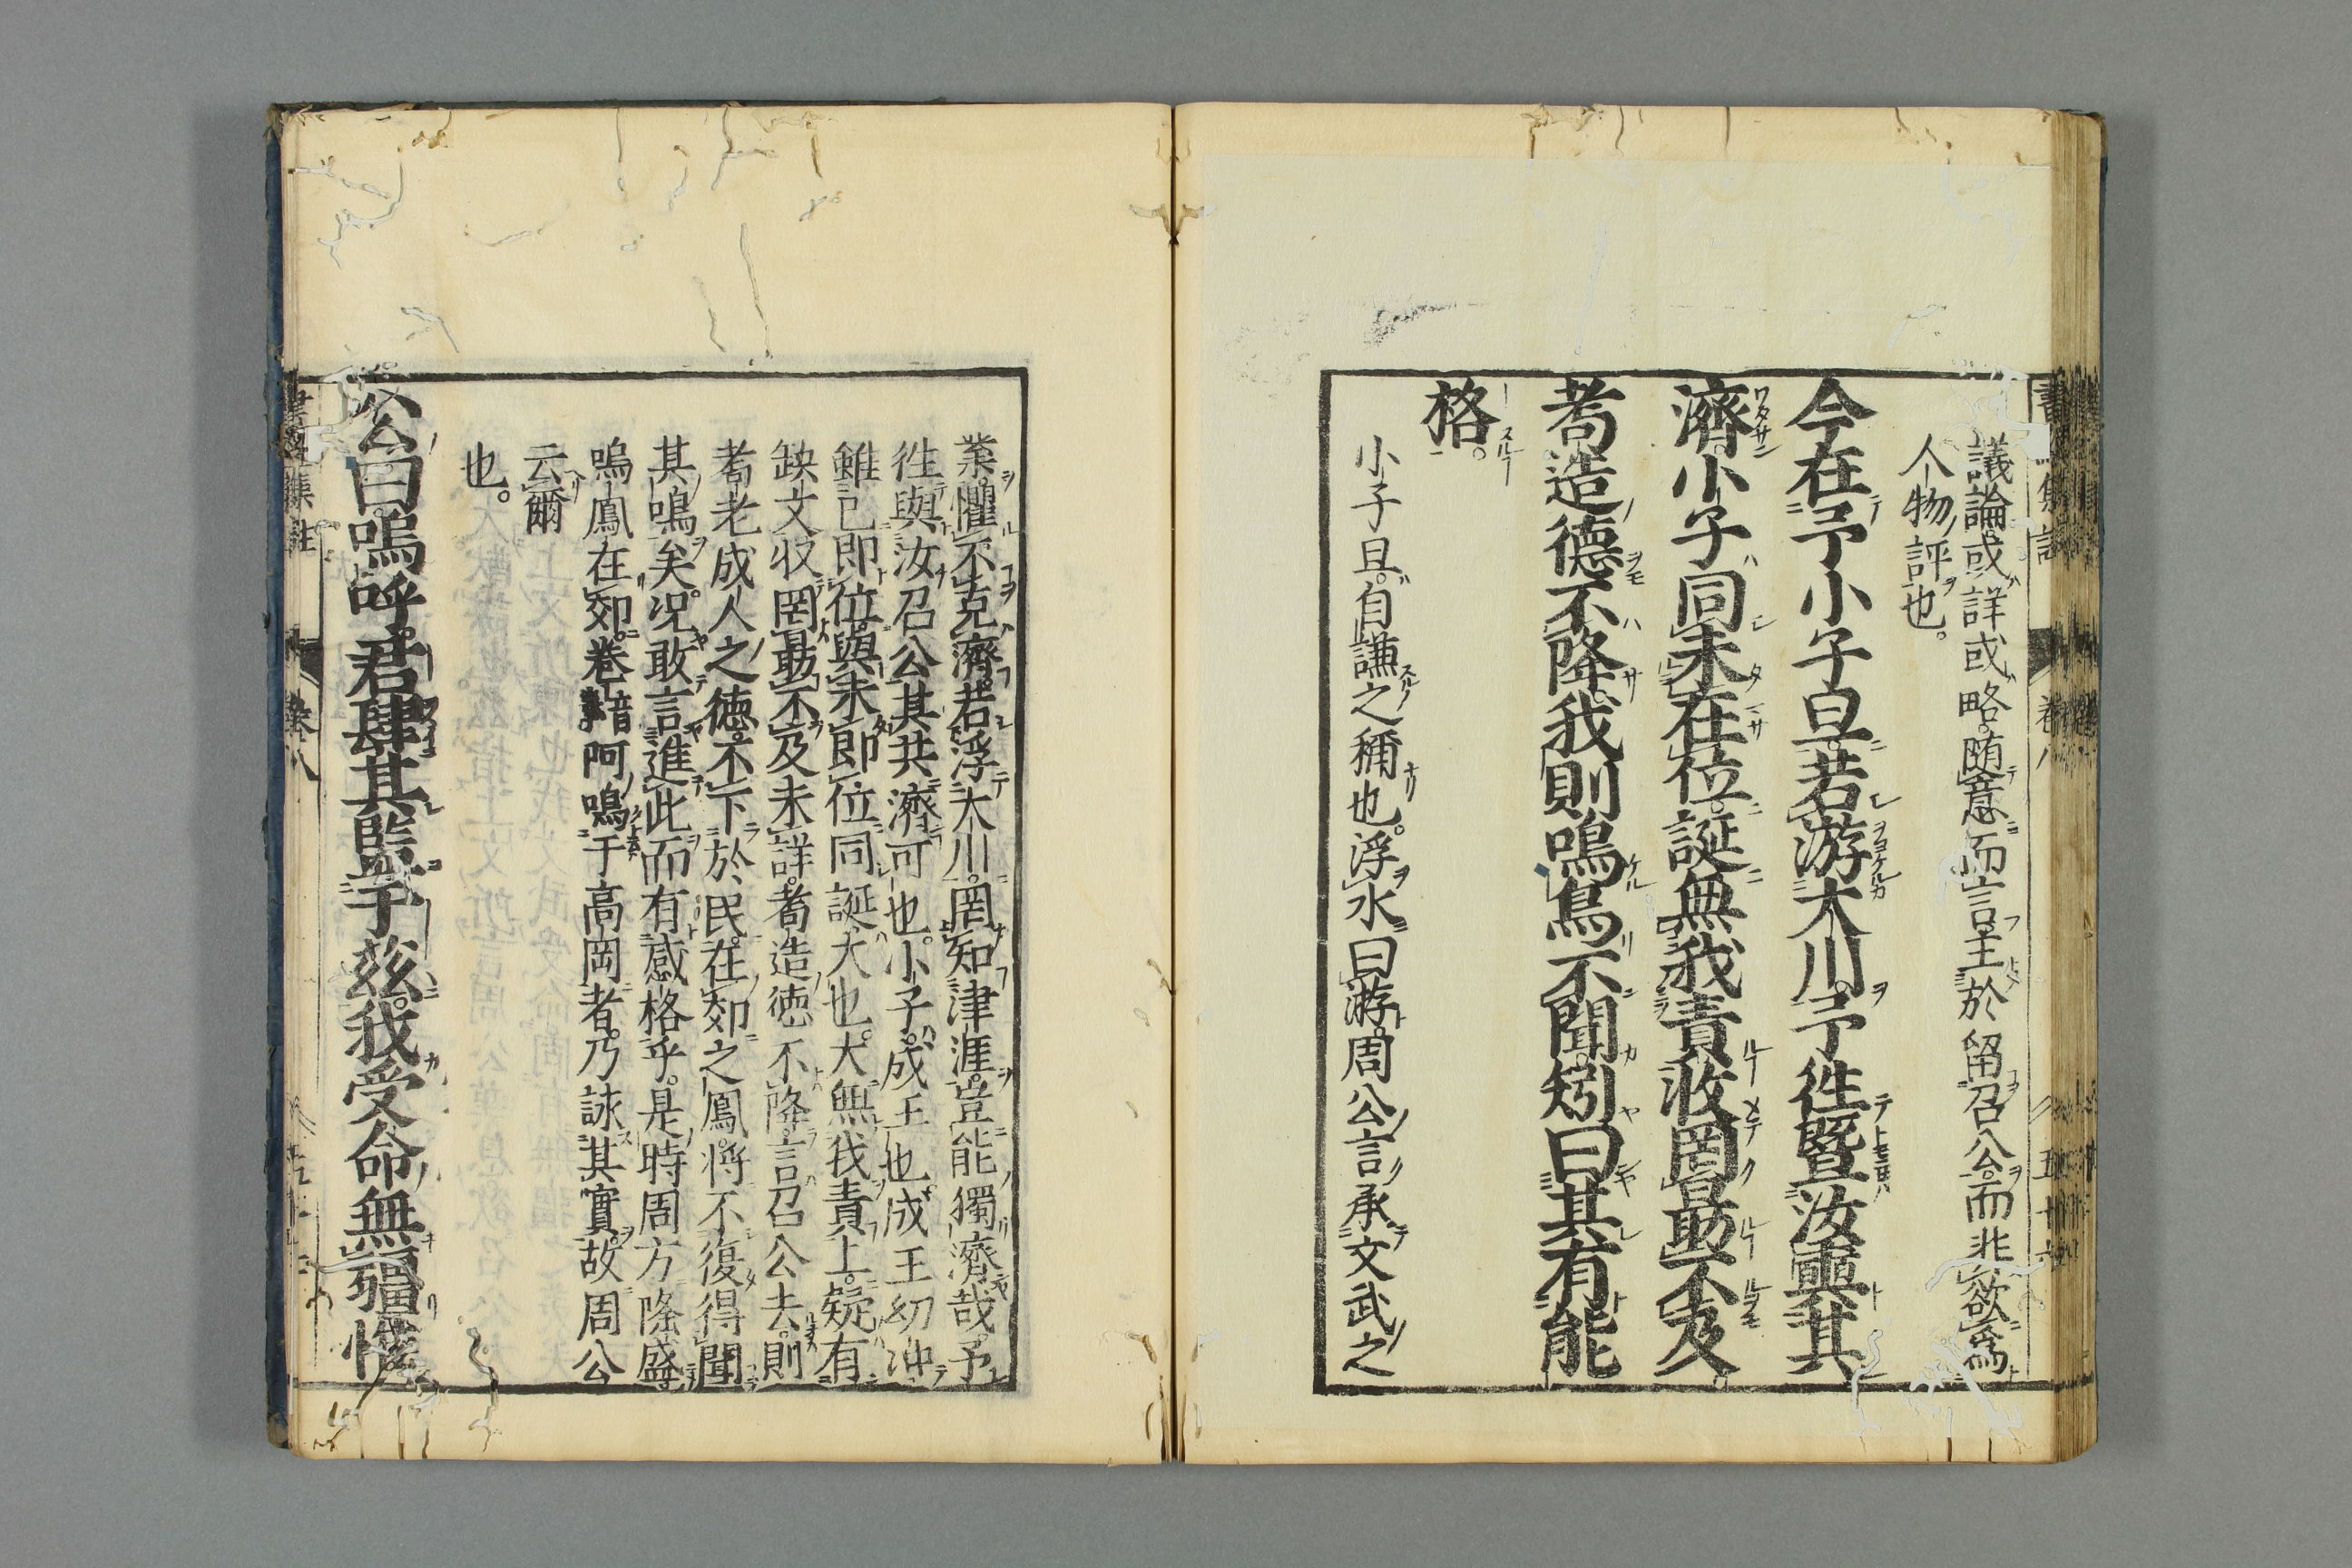 議論或詳或略隨意而言主於留召公而非欲爲
人物評也。
今在予小子旦若游大川予徃暨汝奭其
濟小子同未在位誕無我責收罔勗不及
耇造德不降我則鳴鳥不聞矧曰其有能
格。
小子旦自謙之稱也浮水曰游周公言承文武之
業懼不克濟若浮大川罔知津涯豈能獨濟哉予
徃與汝召公其共濟可也小子成王也成王幼冲
雖已即位與未即位同誕大也大無我責上疑有
缺文收罔勗不及未詳耇造德不降言召公去則
耇老成人之德不下於民在郊之鳳將不復得聞
其鳴矣况敢言進此而有感格乎是時周方隆盛
鳴鳳在郊卷阿鳴于高岡者乃詠其實故周公
云爾
也。
公曰嗚呼君肆其監于玆我受命無疆惟